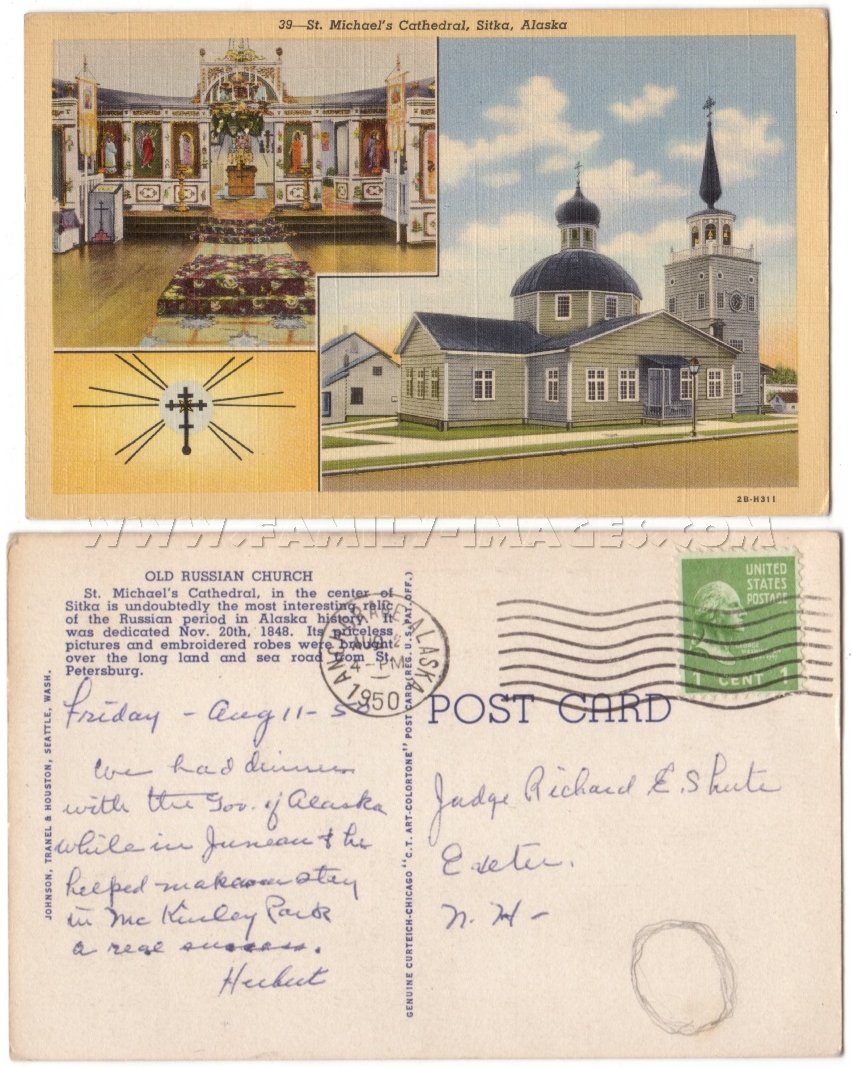 39—St. Michael's Cathedral, Sitka, Alaska
2B-H311
WWW.FAMILY-IMAGES.COM
OLD RUSSIAN CHURCH
St. Michael's Cathedral, in the center of
Sitka is undoubtedly the most interesting relic
of the Russian period in Alaska history. It
was dedicated Nov. 20th, 1848. Its priceless
pictures and embroidered robes were brought
over the long land and sea road from St.
Petersburg.
JOHNSON, TRANEL & HOUSTON, SEATTLE, WASH.
GENUINE CURTEICH-CHICAGO "C.T. ART-COLORTONE" POST CARD (REG. U.S. PAT. OFF.)
ANCHORAGE, ALASKA
AUG
4-PM
1950
UNITED
STATES
POSTAGE
1 CENT 1
POST CARD
Friday - Aug 11-5
We had dinner
with the Gov. of Alaska
while in Juneau & he
helped make our stay
in McKinley Park
a real success.
Herbert
Judge Richard E. Shute
Exeter.
N. H-